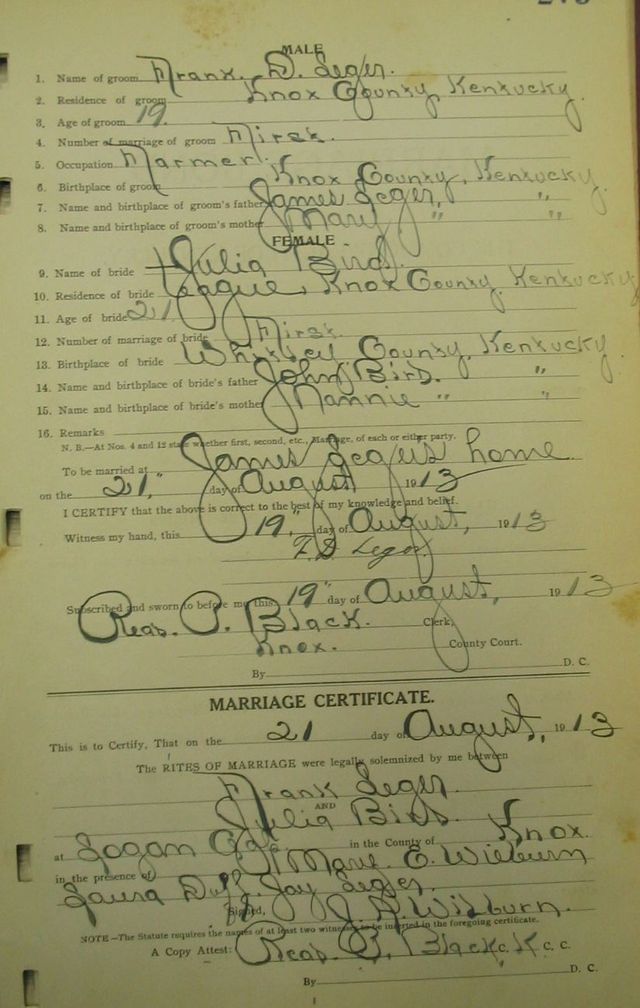 MALE
1. Name of groom Frank. D. Leger.
2. Residence of groom Knox County, Kentucky.
3. Age of groom 19.
4. Number of marriage of groom First.
5. Occupation Farmer.
6. Birthplace of groom Knox County, Kentucky.
7. Name and birthplace of groom's father James Leger, "
8. Name and birthplace of groom's mother Mary " "
FEMALE
9. Name of bride Julia Bird.
10. Residence of bride League, Knox County, Kentucky
11. Age of bride 21
12. Number of marriage of bride First.
13. Birthplace of bride Whitley County, Kentucky.
14. Name and birthplace of bride's father John Bird. "
15. Name and birthplace of bride's mother Nannie " "
16. Remarks
N. B.—At Nos. 4 and 12 state whether first, second, etc., Marriage, of each or either party.
To be married at James Leger's home
on the 21," day of August 1913
I CERTIFY that the above is correct to the best of my knowledge and belief.
Witness my hand, this 19," day of August, 1913
F. D. Leger
Subscribed and sworn to before me this 19" day of August, 1913
Reas. P. Black. Clerk,
Knox. County Court.
By D. C.
MARRIAGE CERTIFICATE.
This is to Certify, That on the 21 day of August, 1913
The RITES OF MARRIAGE were legally solemnized by me between
Frank Leger
AND
Julia Bird.
at Logan Gap in the County of Knox.
in the presence of E. Wilburn
Laura Duff. Jay Leger.
Signed, Wilburn.
NOTE—The Statute requires the names of at least two witnesses to be inserted in the foregoing certificate.
A Copy Attest: Reas. P. Black C. K C. C.
By D. C.